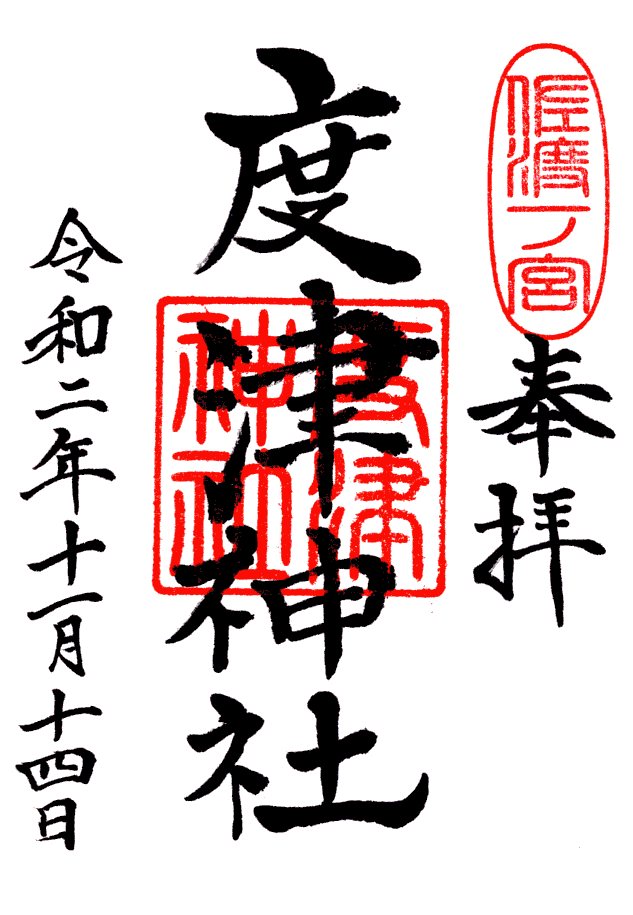 佐渡一ノ宮
奉拝
度津神社
度津
神社
令和二年十一月十四日